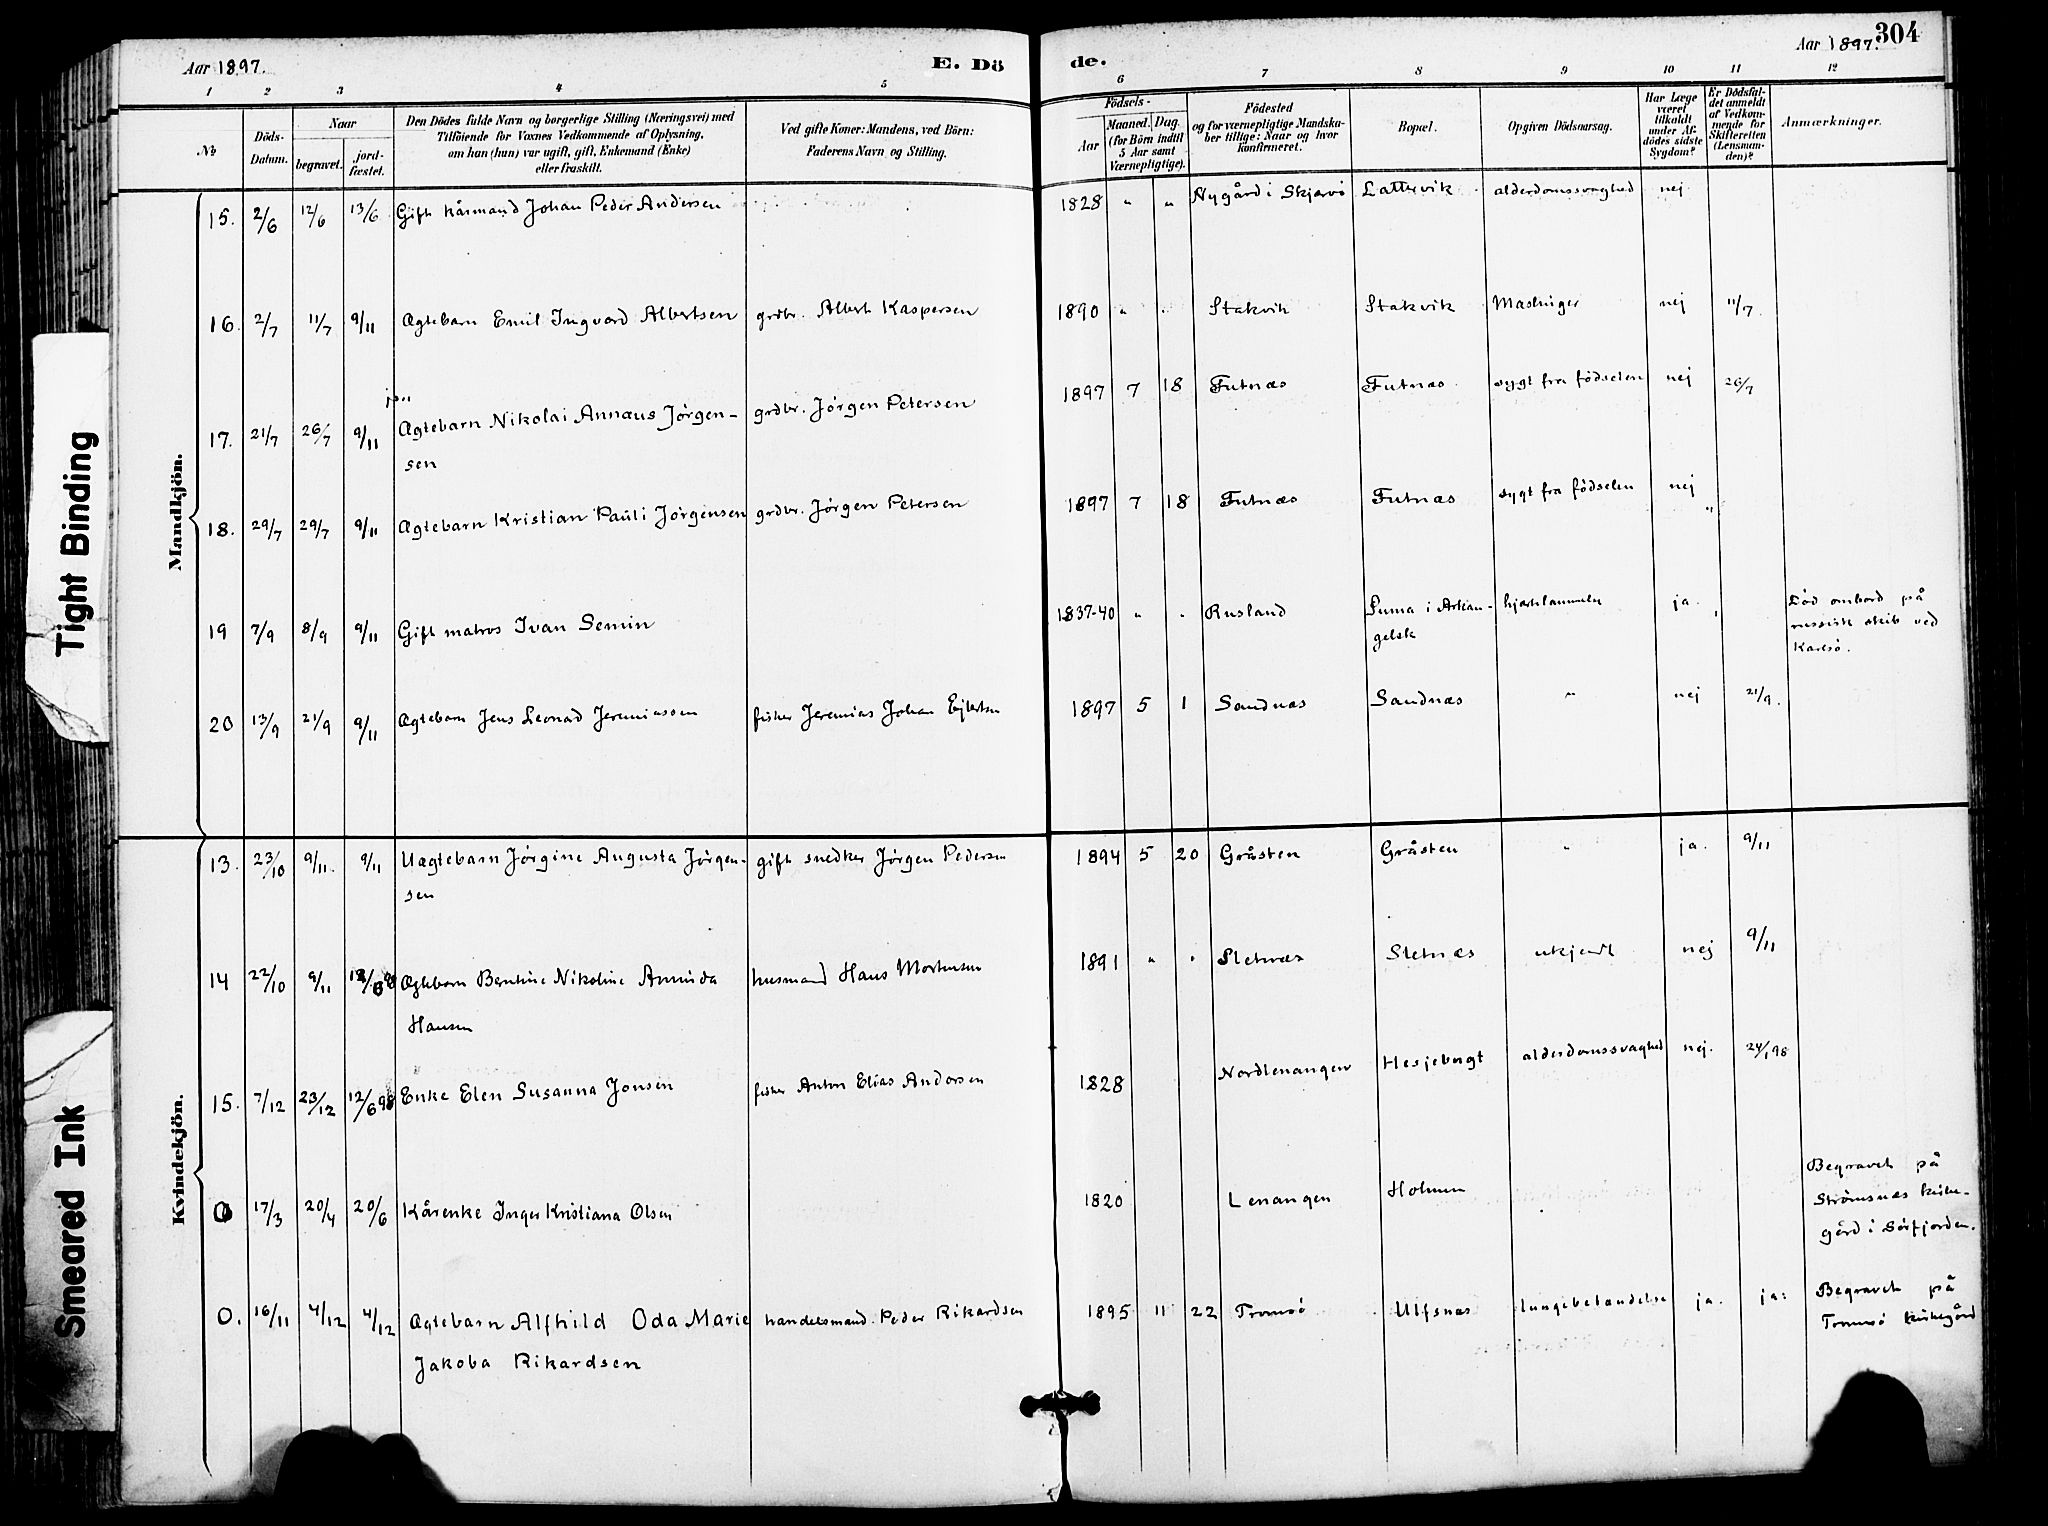 304
Aar 1897.
E. Dö
de.
Aar 1897.
1 2 3 4 5 6 7 8 9 10 11 12
No
Döds-
Datum.
Naar
begravet.
jord-
fæstet.
Den Dödes fulde Navn og borgerlige Stilling (Næringsvei) med
Tilföiende for Voxnes Vedkommende af Oplysning,
om han (hun) var ugift, gift, Enkemand (Enke)
eller fraskilt.
Ved gifte Koner: Mandens, ved Börn:
Faderens Navn og Stilling.
Födsels-
Aar
Maaned. Dag.
(for Börn indtil
5 Aar samt
Værnepligtige).
Födested
og for værnepligtige Mandska-
ber tillige: Naar og hvor
konfirmeret.
Bopæl.
Opgiven Dödsaarsag.
Har Læge
været
tilkaldt
under Af-
dödes sidste
Sygdom?
Er Dödsfal-
det anmeldt
af Vedkom-
mende for
Skifteretten
(Lensman-
den)?
Anmærkninger.
Mandkjön.
15. 2/6 12/6 13/6 Gift kårmand Johan Peder Andersen 1828 " " Nygård i Skjervö Lattervik alderdomssvaghed nej
16. 2/7 11/7 9/11 Ægtebarn Emil Ingvard Albertsen grdbr. Albert Kaspersen 1890 " " Stakvik Stakvik Maslinger nej 11/7.
17. 21/7 26/7 9/11 Ægtebarn Nikolai Annæus Jörgen-
sen grdbr. Jörgen Petersen 1897 7 18 Futnæs Futnæs sygt fra födselen nej 26/7
18. 29/7 29/7 9/11 Ægtebarn Kristian Pauli Jörgensen grdbr. Jörgen Petersen 1897 7 18 Futnæs Futnæs sygt fra födselen nej "
19 7/9 8/9 9/11 Gift matros Ivan Semin 1837-40 " " Rusland Suma i Arkan-
gelsk hjertelammelse ja.
Död ombord på
russisk skib ved
Karlsö.
20 13/9 21/9 9/11 Ægtebarn Jens Leonad Jeremiassen fisker Jeremias Johan Ejlertsen 1897 5 1 Sandnæs Sandnæs " nej 21/9.
Kvindekjön.
13. 23/10 9/11. 9/11 Uægtebarn Jörgine Augusta Jörgen-
sen gift snedker Jörgen Pedersen 1894 5 20 Gråsten Gråsten " ja. 9/11
14 22/10 9/11 12/6 98 Ægtebarn Berntine Nikoline Aminda
Hansen husmand Hans Mortensen 1891 " " Sletnæs Sletnæs ukjendt nej 9/11
15. 7/12 23/12 12/6 98 Enke Elen Susanna Jonsen fisker Anton Elias Andersen 1828 Nordlenangen Hesjebugt alderdomssvaghed nej. 24/1 98
0 17/3 20/4 20/6 Kårenke Inger Kristiana Olsen 1820 Lenangen Holmen
Begravet på
Strömsnæs kirke-
gård i Sörfjorden.
0. 16/11 4/12 4/12 Ægtebarn Alfhild Oda Marie
Jakoba Rikardsen handelsmand Peder Rikardsen 1895 11 22 Tromsö Ulfsnæs lungebetændelse ja. ja:
Begravet på
Tromsö kirkegård
Tight Binding
Smeared Ink